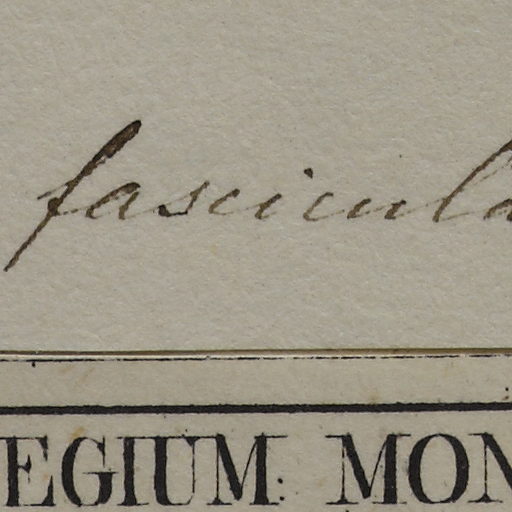 fascicula
EGIUM MON